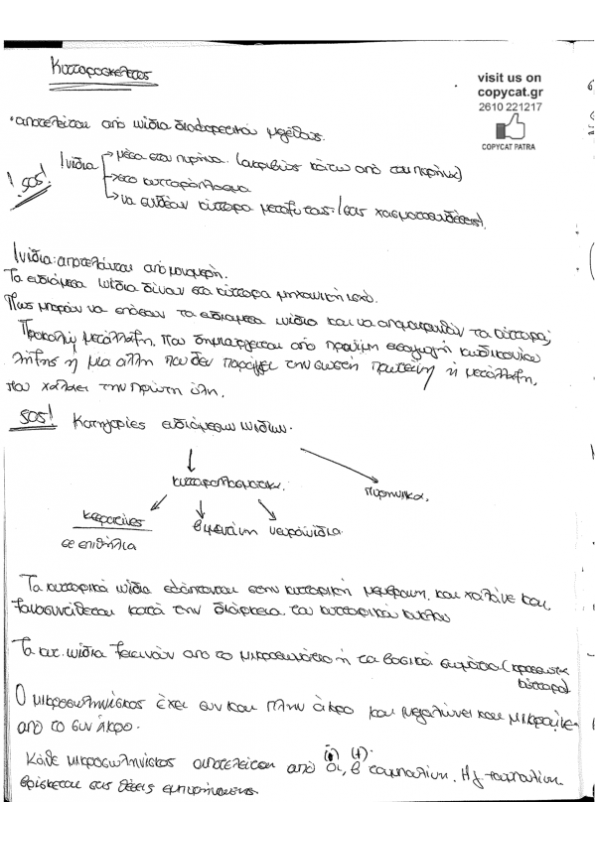 Κυτταροσκελετος
visit us on
copycat.gr
2610 221217
COPYCAT PATRA
• αποτελείται από ινίδια διαφορετικού μεγέθους.
! SOS! Ινίδια → μέσα στον πυρήνα (ακριβώς κάτω από τον πυρήνα)
→ στο κυτταρόπλασμα
→ να συνδέουν κύτταρα μεταξύ τους (στις χασματοσυνδέσεις).
Ινίδια: αποτελούνται από μονομερή.
Τα ενδιάμεσα ινίδια δίνουν στα κύτταρα μηχανική ισχύ.
Πως μπορούν να σπάσουν τα ενδιάμεσα ινίδια και να απομακρυνθούν τα κύτταρα;
Προκαλώ μετάλλαξη, που δημιουργείται από πρόωρη εισαγωγή κωδικονίου
λήξης ή μια άλλη που δεν παράγει την σωστή πρωτεΐνη ή μετάλλαξη,
που χαλάει την πρώτη ύλη.
SOS! Κατηγορίες ενδιάμεσων ινιδίων.
κυτταροπλασματικά. πυρηνικά.
κερατίνες βιμεντίνη νευροϊνίδια
σε επιθήλια
Τα κυτταρικά ινίδια εδράζονται στην κυτταρική μεμβράνη, και χαλάνε και
ξανασυντίθεται κατά την διάρκεια του κυτταρικού κύκλου
Τα κυτ. ινίδια ξεκινούν από το μικροσωμάτιο ή τα βασικά σωμάτια (
κύτταρα)
Ο μικροσωληνίσκος έχει συν και πλην άκρο και μεγαλώνει και μικραίνει
από το συν άκρο.
(-) (+)
Κάθε μικροσωληνίσκος αποτελείται από α, β τουμπουλίνη. Η γ-τουμπουλίνη
βρίσκεται στις θέσεις εμπυρήνωσης.